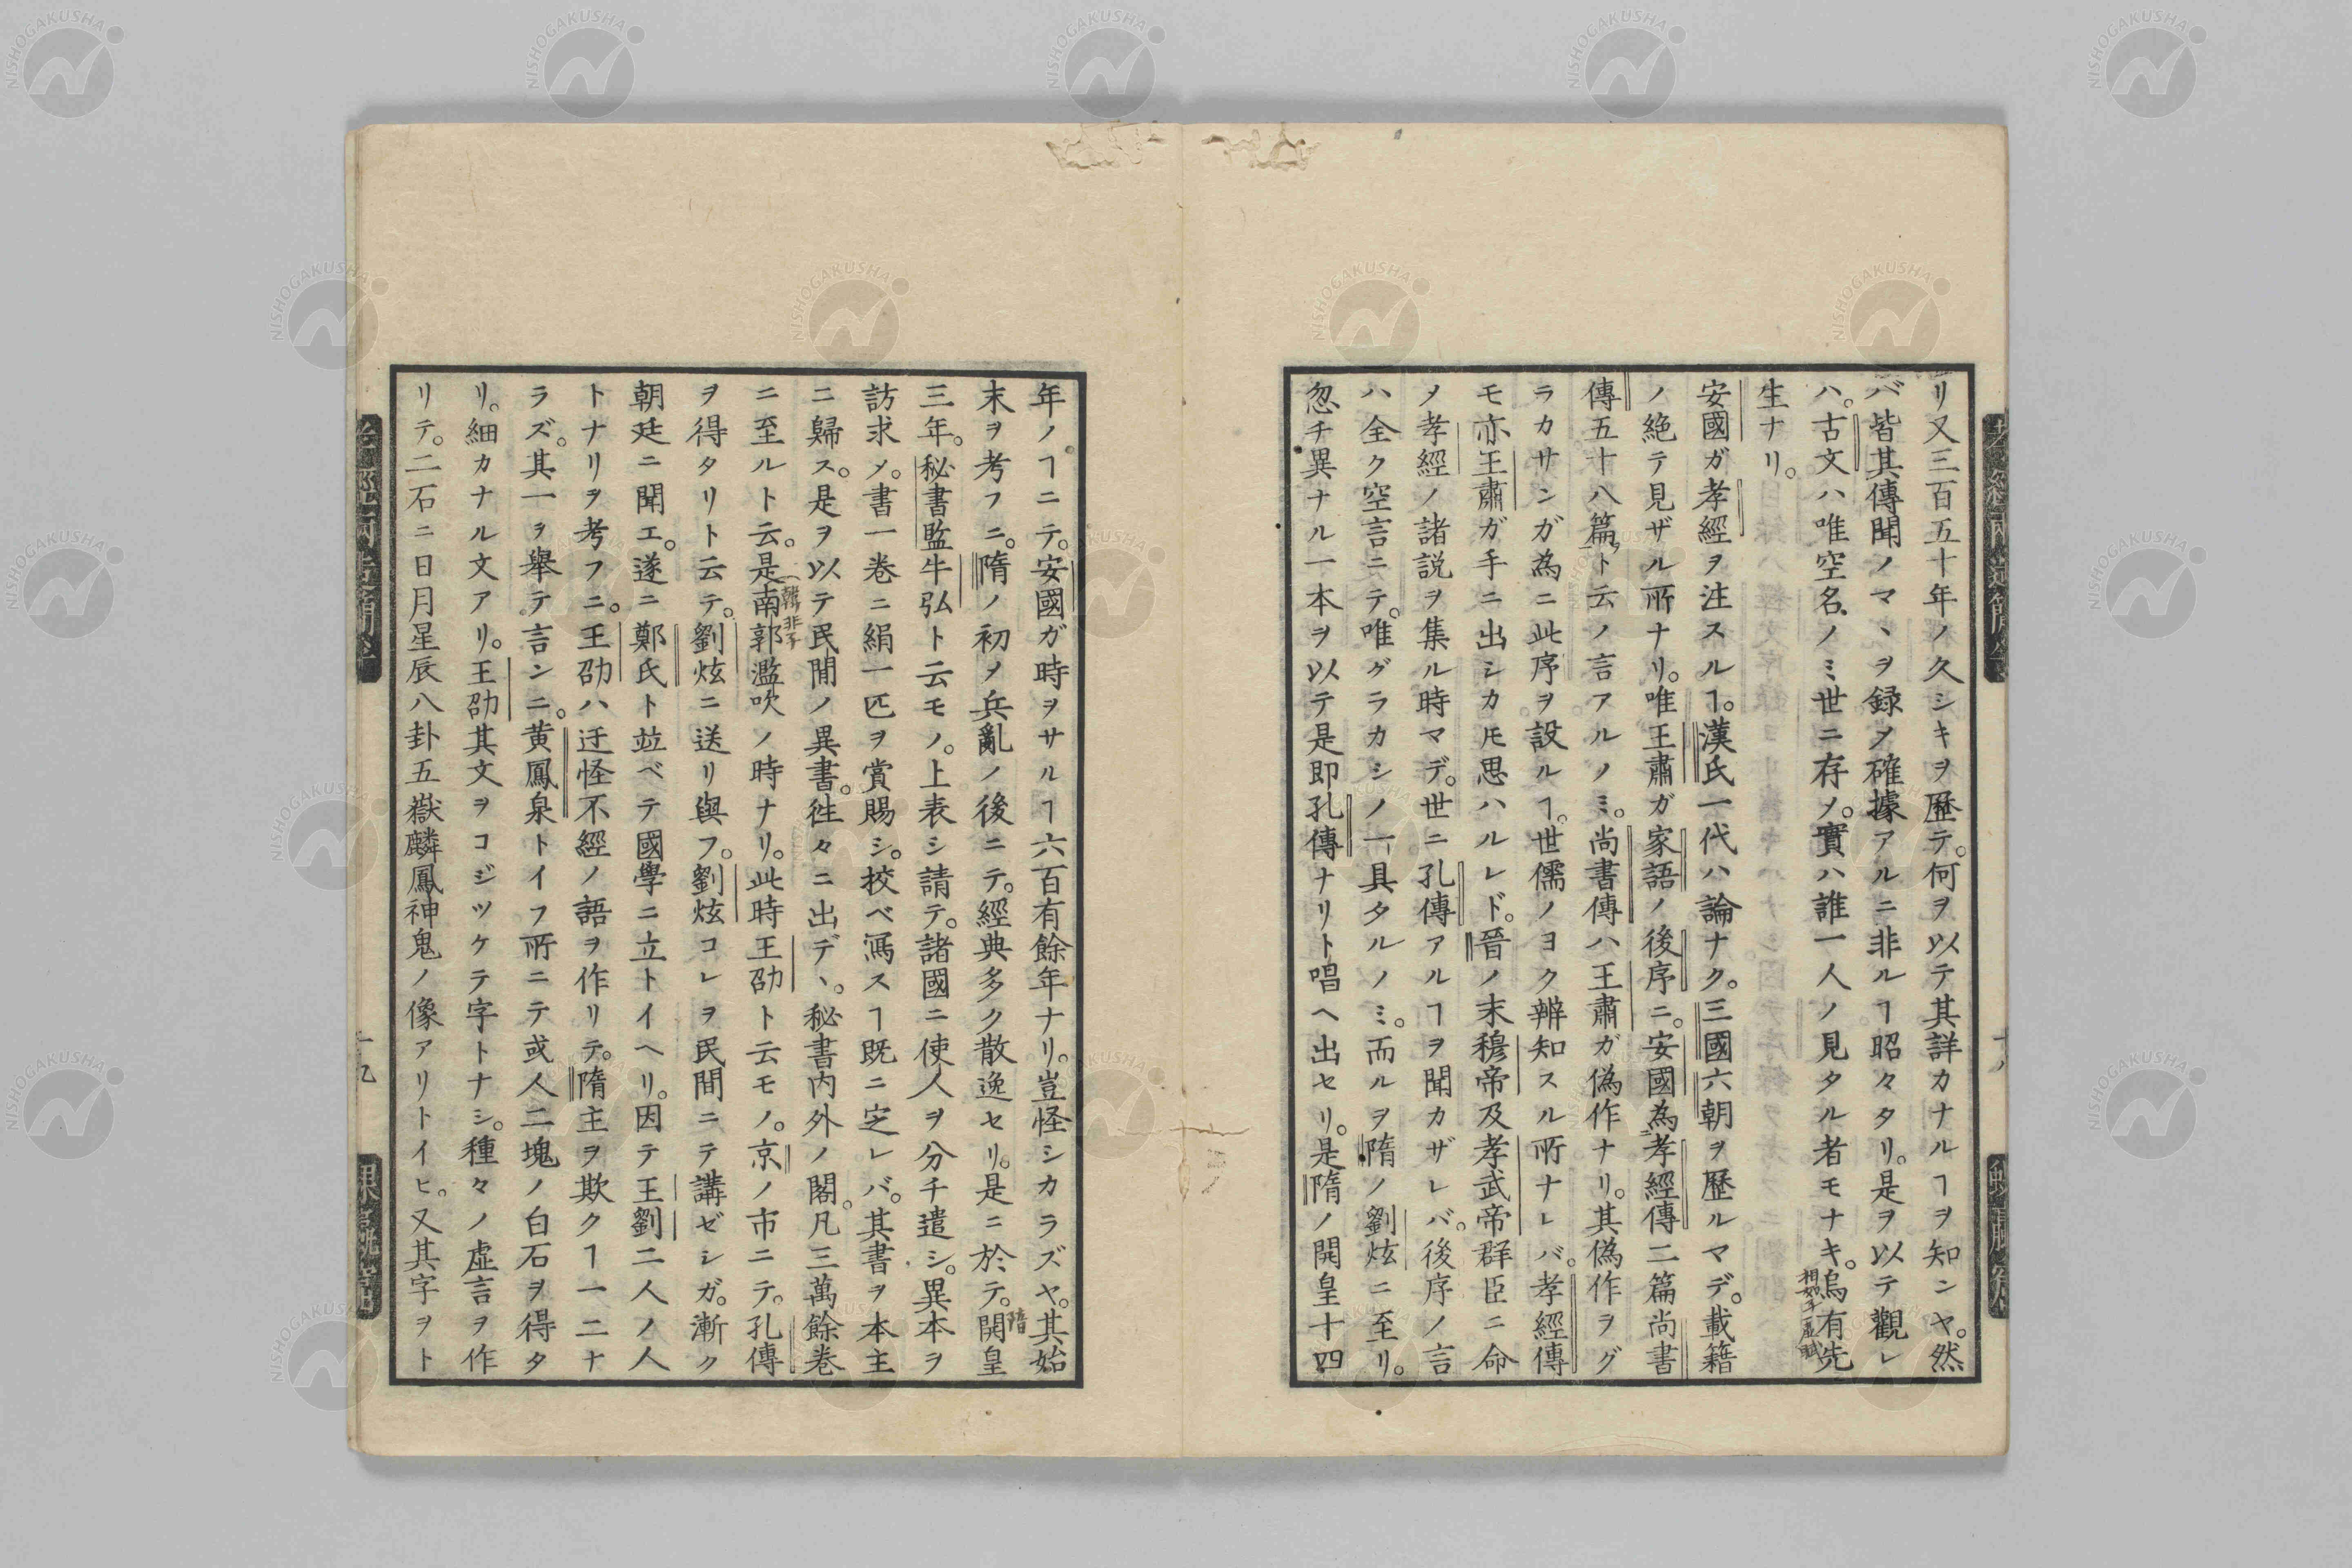 リ又三百五十年ノ久シキヲ歷テ。何ヲ以テ其詳カナルヿヲ知ンヤ。然
バ皆其傳聞ノマヽヲ録メ確據アルニ非ルヿ昭々タリ。是ヲ以テ觀レ
ハ。古文ハ唯空名ノミ世ニ存メ。實ハ誰一人ノ見タル者モナキ。烏有先
相如子虛賦
生ナリ。
安國ガ孝經ヲ注スルヿ。漢氏一代ハ論ナク。三國六朝ヲ歷ルマデ。載籍
ノ絶テ見ザル所ナリ。唯王肅ガ家語ノ後序ニ。安國為孝經傳二篇尚書
傳五十八篇ト云ノ言アルノミ。尚書傳ハ王肅ガ偽作ナリ。其偽作ヲグ
ラカサンガ為ニ此序ヲ設ルヿ。世儒ノヨク辨知スル所ナレバ。孝經傳
モ亦王肅ガ手ニ出シカ𪜈思ハルレド。晉ノ末穆帝及孝武帝群臣ニ命
メ孝經ノ諸説ヲ集ル時マデ。世ニ孔傳アルヿヲ聞カザレバ。後序ノ言
ハ全ク空言ニテ。唯グラカシノ一具タルノミ。而ルヲ隋ノ劉炫ニ至リ。
忽チ異ナル一本ヲ以テ是即孔傳ナリト唱ヘ出セリ。是隋ノ開皇十四
年ノヿニテ。安國ガ時ヲサルヿ六百有餘年ナリ。豈怪シカラズヤ。其始
末ヲ考フニ。隋ノ初メ兵亂ノ後ニテ。經典多ク散逸セリ。是ニ於テ。開皇
隋
三年。秘書監牛弘ト云モノ。上表シ請テ。諸國ニ使人ヲ分チ遣シ。異本ヲ
訪求メ。書一卷ニ絹一匹ヲ賞賜シ。挍ベ寫スヿ既ニ定レバ。其書ヲ本主
ニ歸ス。是ヲ以テ民間ノ異書。徃々ニ出デヽ。秘書内外ノ閣。凡三萬餘卷
ニ至ルト云。是南郭濫吹ノ時ナリ。此時王劭ト云モノ。京ノ市ニテ。孔傳
韓非子
ヲ得タリト云テ。劉炫ニ送リ與フ。劉炫コレヲ民間ニテ講ゼシガ。漸ク
朝廷ニ聞エ。遂ニ鄭氏ト竝ベテ國學ニ立トイヘリ。因テ王劉二人ノ人
トナリヲ考フニ。王劭ハ迂怪不經ノ語ヲ作リテ。隋主ヲ欺クヿ一二ナ
ラズ。其一ヲ舉テ言ンニ。黄鳳泉トイフ所ニテ或人二塊ノ白石ヲ得タ
リ。細カナル文アリ。王劭其文ヲコジツケテ字トナシ。種々ノ虛言ヲ作
リテ。二石ニ日月星辰八卦五嶽麟鳳神鬼ノ像アリトイヒ。又其字ヲト